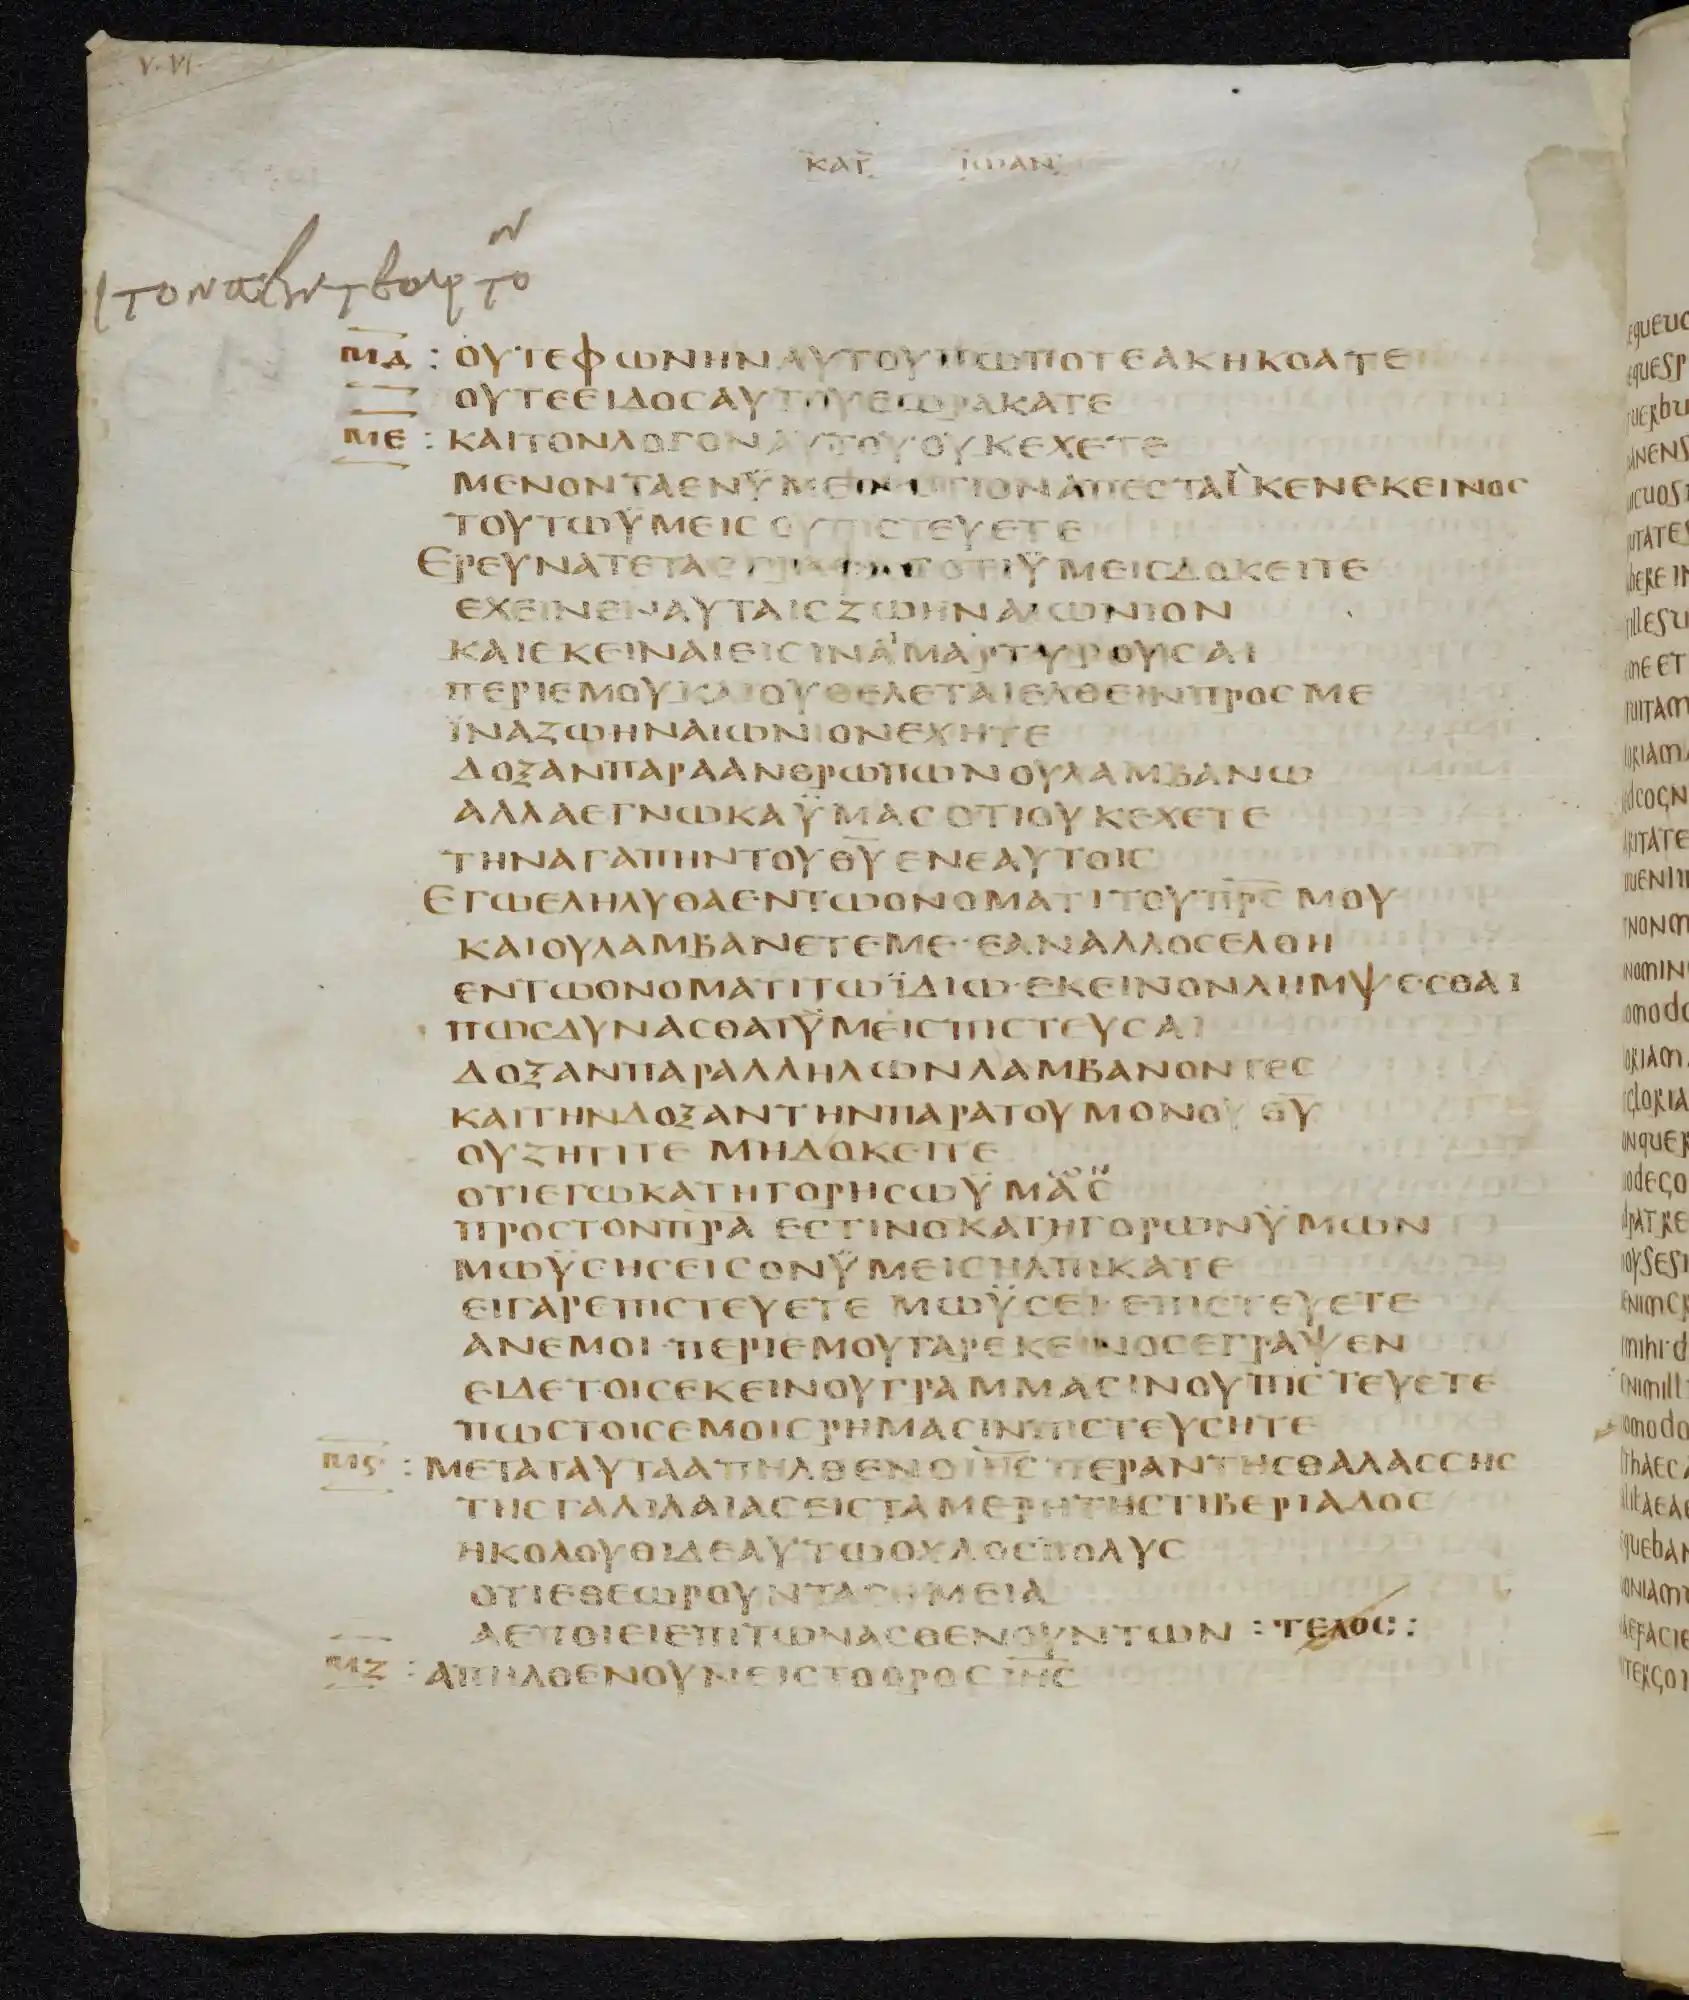 V·VI·
ΚΑΤ ΙΩΑΝ
ΜΔ : ΟΥΤΕΦΩΝΗΝΑΥΤΟΥΠΩΠΟΤΕΑΚΗΚΟΑΤΕ
ΟΥΤΕΕΙΔΟΣΑΥΤΟΥΕΩΡΑΚΑΤΕ
ΜΕ : ΚΑΙΤΟΝΛΟΓΟΝΑΥΤΟΥ·ΟΥΚΕΧΕΤΕ
ΜΕΝΟΝΤΑΕΝΫΜΕΙΝ ΑΠΕΣΤΑΛΚΕΝΕΚΕΙΝΟΣ
ΤΟΥΤΩΫΜΕΙΣΟΥΠΙΣΤΕΥΕΤΕ
ΕΡΕΥΝΑΤΕΤΑΣΓΡΑΦΑΣΟΤΙΫΜΕΙΣΔΟΚΕΙΤΕ
ΕΧΕΙΝΕΝΑΥΤΑΙΣΖΩΗΝΑΙΩΝΙΟΝ
ΚΑΙΕΚΕΙΝΑΙΕΙΣΙΝΑΙΜΑΡΤΥΡΟΥΣΑΙ
ΠΕΡΙΕΜΟΥΚΑΙΟΥΘΕΛΕΤΑΙΕΛΘΕΙΝΠΡΟΣΜΕ
ΪΝΑΖΩΗΝΑΙΩΝΙΟΝΕΧΗΤΕ
ΔΟΞΑΝΠΑΡΑΑΝΘΡΩΠΩΝΟΥΛΑΜΒΑΝΩ
ΑΛΛΑΕΓΝΩΚΑΫΜΑΣΟΤΙΟΥΚΕΧΕΤΕ
ΤΗΝΑΓΑΠΗΝΤΟΥΘΥΕΝΕΑΥΤΟΙΣ
ΕΓΩΕΛΗΛΥΘΑΕΝΤΩΟΝΟΜΑΤΙΤΟΥΠΡΣΜΟΥ
ΚΑΙΟΥΛΑΜΒΑΝΕΤΕΜΕ·ΕΑΝΑΛΛΟΣΕΛΘΗ
ΕΝΤΩΟΝΟΜΑΤΙΤΩΪΔΙΩ·ΕΚΕΙΝΟΝΛΗΜΨΕΣΘΑΙ
ΠΩΣΔΥΝΑΣΘΑΙΫΜΕΙΣΠΙΣΤΕΥΣΑΙ
ΔΟΞΑΝΠΑΡΑΛΛΗΛΩΝΛΑΜΒΑΝΟΝΤΕΣ
ΚΑΙΤΗΝΔΟΞΑΝΤΗΝΠΑΡΑΤΟΥΜΟΝΟΥΘΥ
ΟΥΖΗΤΙΤΕ ΜΗΔΟΚΕΙΤΕ
ΟΤΙΕΓΩΚΑΤΗΓΟΡΗΣΩΫΜΑΣ
ΠΡΟΣΤΟΝΠΡΑ ΕΣΤΙΝΟΚΑΤΗΓΟΡΩΝΫΜΩΝ
ΜΩΫΣΗΣΕΙΣΟΝΫΜΕΙΣΗΛΠΙΚΑΤΕ
ΕΙΓΑΡΕΠΙΣΤΕΥΕΤΕ ΜΩΫΣΕΙ·ΕΠΙΣΤΕΥΕΤΕ
ΑΝΕΜΟΙ·ΠΕΡΙΕΜΟΥΓΑΡΕΚΕΙΝΟΣΕΓΡΑΨΕΝ
ΕΙΔΕΤΟΙΣΕΚΕΙΝΟΥΓΡΑΜΜΑΣΙΝΟΥΠΙΣΤΕΥΕΤΕ
ΠΩΣΤΟΙΣΕΜΟΙΣΡΗΜΑΣΙΝΠΙΣΤΕΥΣΗΤΕ
ΜϚ : ΜΕΤΑΤΑΥΤΑΑΠΗΛΘΕΝΟΙΗΣΠΕΡΑΝΤΗΣΘΑΛΑΣΣΗΣ
ΤΗΣΓΑΛΙΛΑΙΑΣΕΙΣΤΑΜΕΡΗΤΗΣΤΙΒΕΡΙΑΔΟΣ
ΗΚΟΛΟΥΘΙΔΕΑΥΤΩΟΧΛΟΣΠΟΛΥΣ
ΟΤΙΕΘΕΩΡΟΥΝΤΑΣΗΜΕΙΑ
ΑΕΠΟΙΕΙΕΠΙΤΩΝΑΣΘΕΝΟΥΝΤΩΝ : ΤΕΛΟΣ :
ΜΖ : ΑΠΗΛΘΕΝΟΥΝΕΙΣΤΟΟΡΟΣΙΗΣ